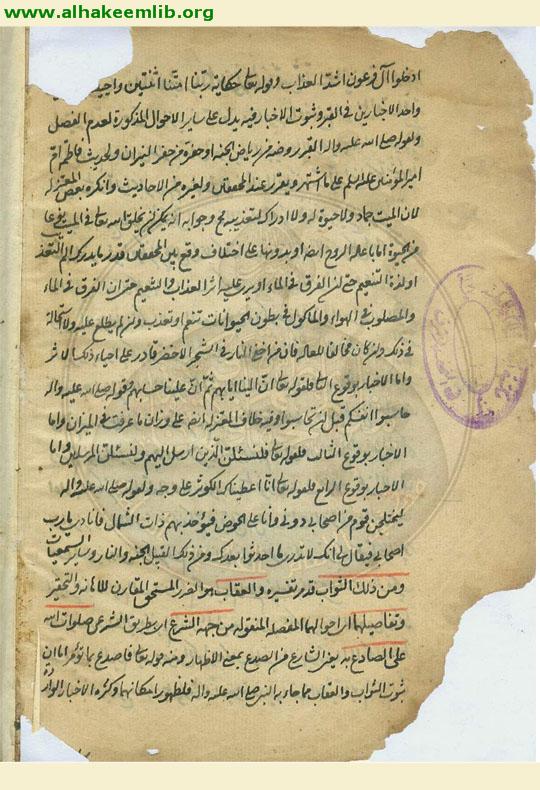 www.alhakeemlib.org
ادخلوا آل فرعون اشدّ العذاب وقوله تعالى حكاية ربّنا امتّنا اثنتين واحييتنا
واحد الاخبارين في القبر وثبوت الاخبار فيه يدل على ساير الاحوال المذكورة لعدم الفصل
ولقوله صلى الله عليه واله القبر روضة من رياض الجنة او حفرة من حفر النيران ولحديث فاطمة امّ
امير المؤمنين عليه السلم على ما اشتهر ويقرر عند المحققين ولغيره من الاحاديث وانكره بعض المعتزلة
لان الميت جماد ولا حيوة له ولا ادراك فتعذيبه مح وجوابه انه يمكن ان يخلق الله تعالى في الميت
من الحيوة اما باعادة الروح اليه او بدونها على اختلاف وقع بين المحققين قدر ما يدرك الم التعذيب
او لذة التنعيم حتى ان الغرق في الماء
والمصلوب في الهواء والماكول في بطون الحيوانات تنعم وتعذب وان لم يطلع عليه ولا استحالة
في ذلك وان كان مخالفا للعادة فان من اخفى النار في الشجر الاخضر قادر على اخفاء ذلك
واما الاخبار بوقوع الثاني فلقوله تعالى ان الينا ايابهم ثم انّ علينا حسابهم وقوله صلى الله عليه واله
حاسبوا انفسكم قبل ان تحاسبوا وفيه خلاف المعتزلة ايضا على وزان ما عرفت في الميزان واما
الاخبار بوقوع الثالث فلقوله تعالى فلنسئلنّ الّذين ارسل اليهم ولنسئلنّ المرسلين واما
الاخبار بوقوع الرابع فلقوله تعالى انّا اعطيناك الكوثر على وجه ولقوله صلى الله عليه واله
ليختلجن قوم من اصحابي دوني وانا على الحوض فيؤخذ بهم ذات الشمال فانادي يا رب
اصحابي فيقال لي انك لا تدري ما احدثوا بعدك ومن ذلك القبيل الجنة والنار وساير السمعيات
ومن ذلك الثواب قد مر تفسيره والعقاب هو الضرر المستحق المقارن للاهانة والتحقير
وتفاصيلها اي احوالهما المفصلة المنقولة من جهة الشرع اي بطريق الشرعي صلوات الله
على الصادع به يعني الشارع من الصدع بمعنى الاظهار ومنه قوله تعالى فاصدع بما تؤمر اما ان
ثبوت الثواب والعقاب مما جاء به النبي صلى الله عليه واله فلظهور امكانهما وكثرة الاخبار الواردة